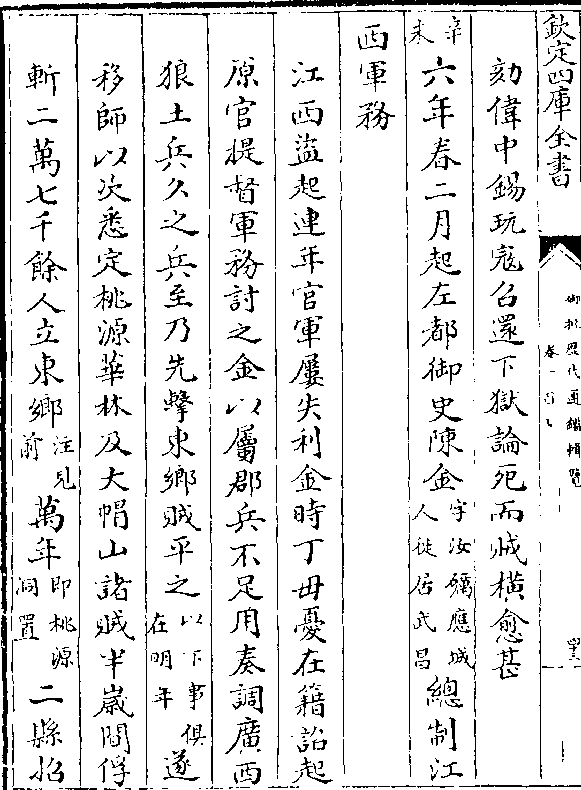 欽定四庫全書
御批歷代通鑑輯覽
卷一百八
劾偉中錫玩寇召還下獄論死而賊横愈甚
辛未六年春二月起左都御史陳金字汝礪應城人徙居武昌總制江
西軍務
江西盜起連年官軍屢失利金時丁母憂在籍詔起
原官提督軍務討之金以屬郡兵不足用奏調廣西
狼土兵久之兵至乃先擊東鄉賊平之以下事俱在明年遂
移師以次悉定桃源華林及大帽山諸賊半嵗間俘
斬二萬七千餘人立東鄉注見前萬年即桃源洞置二縣招